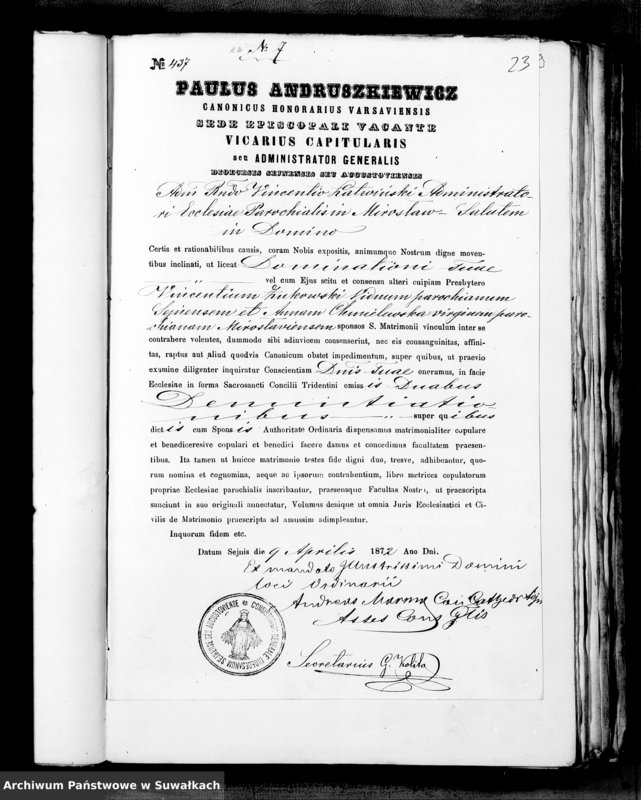 № 437
N: 7
23
PAULUS ANDRUSZKIEWICZ
CANONICUS HONORARIUS VARSAVIENSIS
SEDE EPISCOPALI VACANTE
VICARIUS CAPITULARIS
seu ADMINISTRATOR GENERALIS
DIOECESIS SEJNENSIS SEU AUGUSTOVIENSIS
Adm Rndo Vincentio Kalwinski Administrato-
ri Ecclesiae Parochialis in Mirosław - Salutem
in Domino
Certis et rationabilibus causis, coram Nobis expositis, animumque Nostrum digne moven-
tibus inclinati, ut liceat Dominationi Tuae
vel cum Ejus scitu et consensu alteri cuipiam Presbytero
Vincentium Żukowski Viduum parochianum
Sejnensem et Annam Chmielewska virginem paro-
chianam Mirosłaviensem sponsos S. Matrimonii vinculum inter se
contrahere volentes, dummodo sibi adinvicem consenserint, nec eis consanguinitas, affini-
tas, raptus aut aliud quodvis Canonicum obstet impedimentum, super quibus, ut praevio
examine diligenter inquiratur Conscientiam Dnis Tuae oneramus, in facie
Ecclesiae in forma Sacrosancti Concilii Tridentini omissis Duabus
Denuntiatio
nibus — „ — super quibus
dictis cum Sponsis Authoritate Ordinaria dispensamus matrimonialiter copulare
et benediceresive copulari et benedici facere damus et concedimus facultatem praesen-
tibus. Ita tamen ut huicce matrimonio testes fide digni duo, tresve, adhibeantur, quo-
rum nomina et cognomina, aeque ac ipsorum contrahentium, libro metrices copulatorum
propriae Ecclesiae parochialis inscribantur, praesensque Facultas Nostra, ut praescripta
sanciunt in suo originali annectatur, Volumus denique ut omnia Juris Ecclesiastici et Ci-
vilis de Matrimonio praescripta ad amussim adimpleantur.
Inquorum fidem etc.
Datum Sejnis die 9 Aprilis 1872 Ano Dni.
Ex mandato Illustrissimi Domini
loci Ordinarii
Andreas Can Cathedr
Asses Cons Glis
Secretarius G.
Archiwum Państwowe w Suwałkach